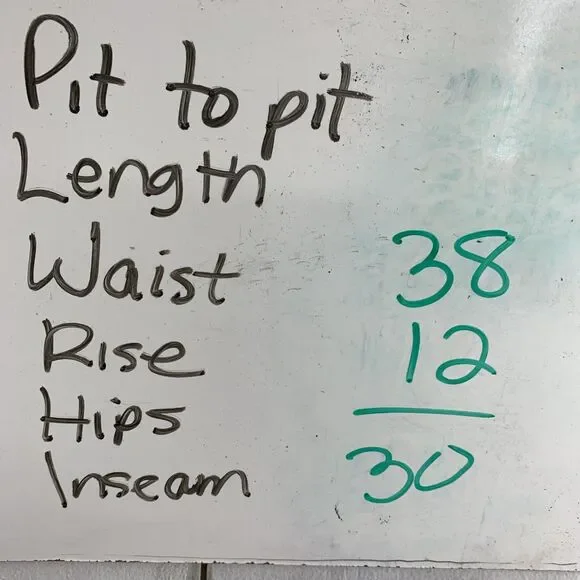 Pit to pit
Length
Waist 38
Rise 12
Hips —
Inseam 30